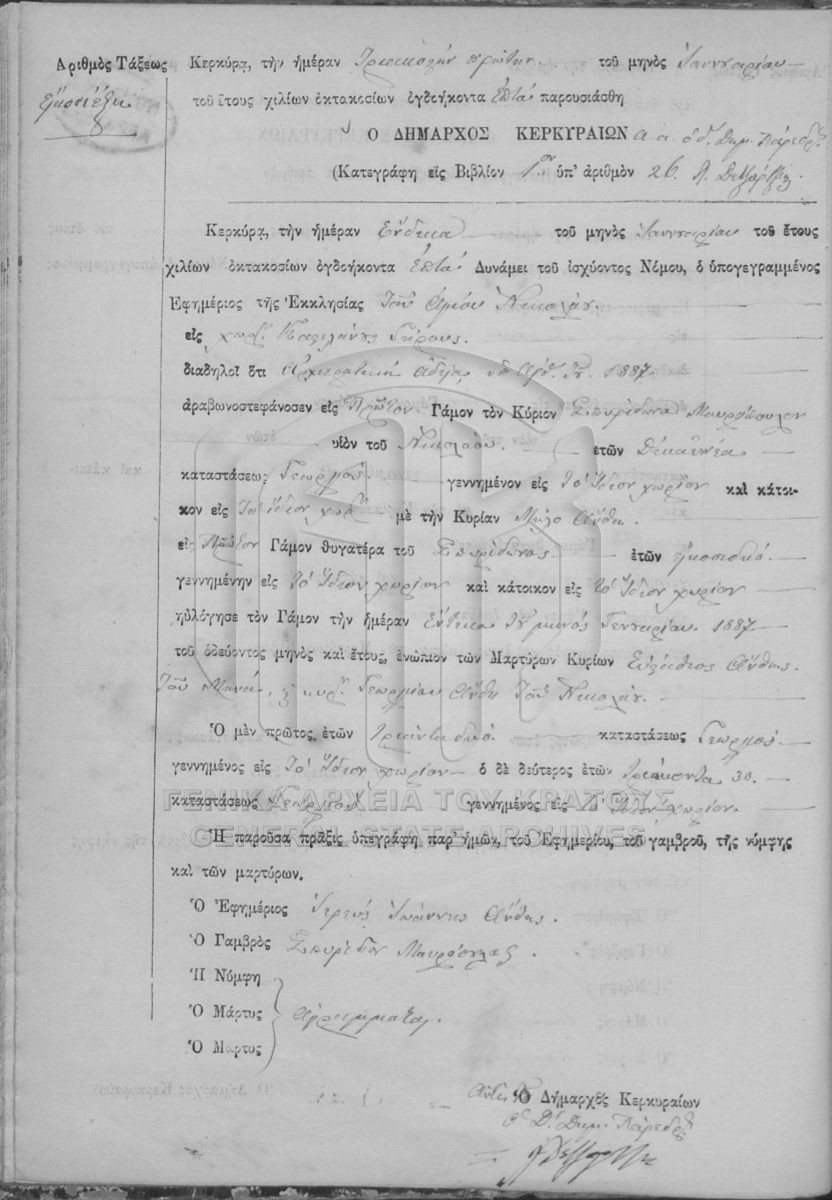 Ἀριθμὸς Τάξεως
εἰκοσιέξη
Κερκύρᾳ, τὴν ἡμέραν Τριακοστὴν πρώτην τοῦ μηνὸς Ἰαννουαρίου
τοῦ ἔτους χιλίων ὀκτακοσίων ὀγδοήκοντα ἑπτά παρουσιάσθη
Ὁ ΔΗΜΑΡΧΟΣ ΚΕΡΚΥΡΑΙΩΝ α. α. ὁ δ. Δημ. Πάρεδρ.
(Κατεγράφη εἰς Βιβλίον 1ον ὑπ' ἀριθμὸν 26.
Κερκύρᾳ, τὴν ἡμέραν Ἕνδεκα τοῦ μηνὸς Ἰαννουαρίου τοῦ ἔτους
χιλίων ὀκτακοσίων ὀγδοήκοντα ἑπτά Δυνάμει τοῦ ἰσχύοντος Νόμου, ὁ ὑπογεγραμμένος
Ἐφημέριος τῆς Ἐκκλησίας Τοῦ Ἁγίου Νικολάου.
εἰς χωρ. Γύρους.
διαδηλοῖ ὅτι Ἀρχιερατικῇ ἀδείᾳ 1887.
ἀραβωνοστεφάνοσεν εἰς Πρῶτον Γάμον τὸν Κύριον Σπυρίδωνα Μαυρόπουλον
υἱὸν τοῦ Νικολάου. ἐτῶν Δεκαεννέα
καταστάσεως Γεωργός. γεννημένον εἰς Τὸ Ἴδιον χωρίον καὶ κάτοι-
κον εἰς Τὸ Ἴδιον χωρ. μὲ τὴν Κυρίαν Μάρο Ἄνθη.
εἰς Πρῶτον Γάμον θυγατέρα τοῦ Σπυρίδωνος ἐτῶν εἰκοσιδυό.
γεννημένην εἰς Τὸ Ἴδιον χωρίον καὶ κάτοικον εἰς Τὸ Ἴδιον χωρίον
ηὐλόγησε τὸν Γάμον τὴν ἡμέραν Ἕντεκα Τοῦ μηνός Γενναρίου 1887
τοῦ ὁδεύοντος μηνὸς καὶ ἔτους, ἐνώπιον τῶν Μαρτύρων Κυρίων Εὐστάθιος Ἄνθης
Τοῦ Μηνᾶ, κ κυρ. Γεωργίου Ἄνθη Τοῦ Νικολάου.
Ὁ μὲν πρῶτος ἐτῶν Τριάντα δυό καταστάσεως Γεωργός
γεννημένος εἰς Τὸ Ἴδιον χωρίον ὁ δὲ δεύτερος ἐτῶν Τριάκοντα 30.
καταστάσεως Γεωργός γεννημένος εἰς Τὸ Ἴδιον χωρίον.
ΓΕΝΙΚΑ ΑΡΧΕΙΑ ΤΟΥ ΚΡΑΤΟΥΣ
GENERAL STATE ARCHIVES
Ἡ παροῦσα πρᾶξις ὑπεγράφη παρ' ἡμῶν, τοῦ Ἐφημερίου, τοῦ γαμβροῦ, τῆς νύμφης
καὶ τῶν μαρτύρων.
Ὁ Ἐφημέριος Ἱερεύς Ἰωάννης Ἄνθης.
Ὁ Γαμβρὸς Σπυρίδον Μαυρόπουλος
Ἡ Νύμφη
Ὁ Μάρτυς Ἀγράμματοι
Ὁ Μάρτυς
Ὁ Δήμαρχος Κερκυραίων
ὁ Δ. Δημ. Πάρεδρ.